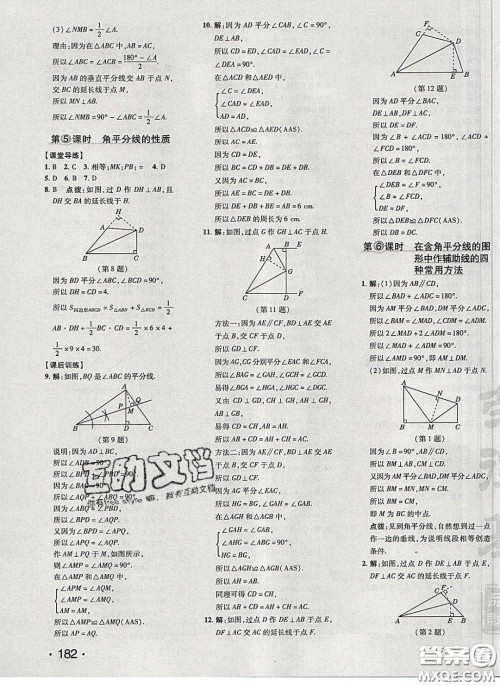 (3) ∠NMB=1/2∠A.
理由:因为在△ABC中,AB=AC,
所以∠ABC=∠ACB=(180°-∠A)/2
因为AB的垂直平分线交AB于点N,
交BC的延长线于点M,
所以MN⊥AB.
所以∠NMB=90°-∠ABC=1/2∠A.
第⑤课时 角平分线的性质
【课堂导练】
1. B 2. C 3. 相等;MK;PB;= 4. D
5. D 6. B 7. D
8. B 点拨:如图,过D作DH⊥AB,且
DH交BA的延长线于H.
(第8题)
因为BD平分∠ABC,∠BCD=90°,
所以DH=CD=4.
所以S四边形ABCD=S△ABD+S△BCD=1/2
AB·DH+1/2BC·CD=1/2×6×4+
1/2×9×4=30.
【课后训练】
9. 解:如图,BQ是∠ABC的平分线.
(第9题)
说明:因为AD⊥BC,
所以∠ADB=90°.
所以∠BPD+∠PBD=90°.
因为∠BAC=90°,
所以∠AQP+∠ABQ=90°.
因为∠ABQ=∠PBD,
所以∠BPD=∠AQP.
因为∠BPD=∠APQ,
所以∠APQ=∠AQP.
作AM⊥PQ于M,如图所示,
则∠AMP=∠AMQ=90°.
在△AMP和△AMQ中,
AM=AM,
∠AMP=∠AMQ,
所以△AMP≌△AMQ(AAS).
所以AP=AQ.
·182·
10. 解:因为AD平分∠CAB,∠C=90°,
DE⊥AB,
所以CD=ED,∠CAD=∠EAD,∠C=
∠DEA=90°.
在△ACD和△AED中,
∠C=∠DEA,
∠CAD=∠EAD,
AD=AD,
所以△ACD≌△AED(AAS).
所以AC=AE,CD=DE.
所以BC=CD+DB=DE+DB.
又因为AC=BC,
所以AE=BC=DE+DB.
所以DE+DB+BE=AB=6 cm.
所以△DEB的周长为6 cm.
11. 解:如图,过点G作GH⊥AC于点H.
(第11题)
方法一:因为AF⊥BD,BD⊥AE交AE
于点B,交CF于点D,
所以GD⊥CF.
因为AG,CG分别平分∠EAC和∠ACF,
所以∠BAG=∠GAH,∠GCH=∠GCD.
易得∠BGA=∠HGA,∠HGC=∠DGC.
所以AB=AH,CH=CD.
所以AB+CD=AH+CH=AC.
方法二:因为AE∥CF,BD⊥AE交AE
于点B,交CF于点D,
所以GD⊥CF.
因为AG平分∠EAC,所以GH=BG.
在△AGH和△ABG中,
∠GAH=∠GAB,
∠AHG=∠ABG=90°,
HG=BG,
所以△AGH≌△AGB(AAS).
所以AH=AB.
同理可得CD=CH,
所以AB+CD=AH+CH=AC.
12. 解:如图,过点D作DE⊥AB于点E,
DF⊥AC交AC的延长线于点F.
(第12题)
因为AD平分∠BAC,
所以DE=DF.
因为∠B+∠ACD=180°,∠ACD+
∠FCD=180°,
所以∠B=∠FCD.
在△DEB和△DFC中,
∠DEB=∠F=90°,
∠B=∠FCD,
DE=DF,
所以△DEB≌△DFC(AAS).
所以DB=DC.
第⑥课时 在含角平分线的图
形中作辅助线的四
种常用方法
1. 解:(1)因为AB∥CD,
所以∠BAD+∠ADC=180°.
因为AM平分∠BAD,DM平分∠ADC,
所以2∠MAD+2∠ADM=180°.
所以∠MAD+∠ADM=90°.
所以∠AMD=90°,即AM⊥DM.
(2)如图,过点M作MN⊥AD于点N.
(第1题)
因为∠B=90°,AB∥CD,
所以BM⊥AB,CM⊥CD.
又因为AM平分∠BAD,DM平分∠ADC,
所以BM=MN,MN=CM.
所以BM=CM,即M为BC的中点.
点拨:见到角平分线,自然想到过一点
作一边的垂线,为说明线段相等创造
条件.
2. 解:如图,过点D作DE⊥AB于点E,
DF⊥AC交AC的延长线于点F.
(第2题)
互助文档
答案圈
MXQE.COM